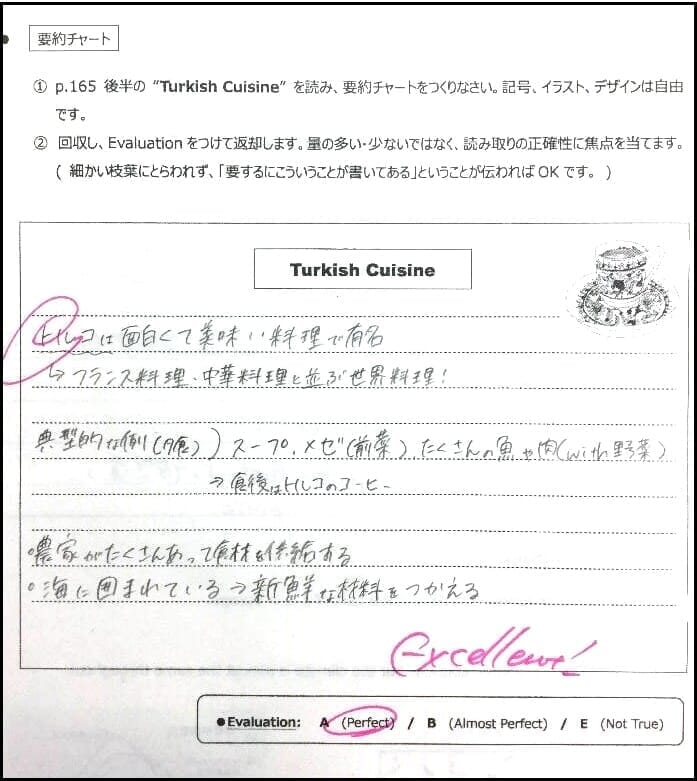 要約チャート
① p.165 後半の “Turkish Cuisine” を読み、要約チャートをつくりなさい。記号、イラスト、デザインは自由
です。
② 回収し、Evaluationをつけて返却します。量の多い・少ないではなく、読み取りの正確性に焦点を当てます。
( 細かい枝葉にとらわれず、「要するにこういうことが書いてある」ということが伝わればOKです。 )
Turkish Cuisine
トルコは面白くて美味しい料理で有名
↳ フランス料理、中華料理と並ぶ世界料理!
典型的な例(夕食)) スープ、メゼ(前菜) たくさんの魚や肉(with野菜)
→ 食後はトルコのコーヒー
・農家がたくさんあって食材を供給する
・海に囲まれている→新鮮な材料をつかえる
Excellent!
●Evaluation: A (Perfect) / B (Almost Perfect) / E (Not True)